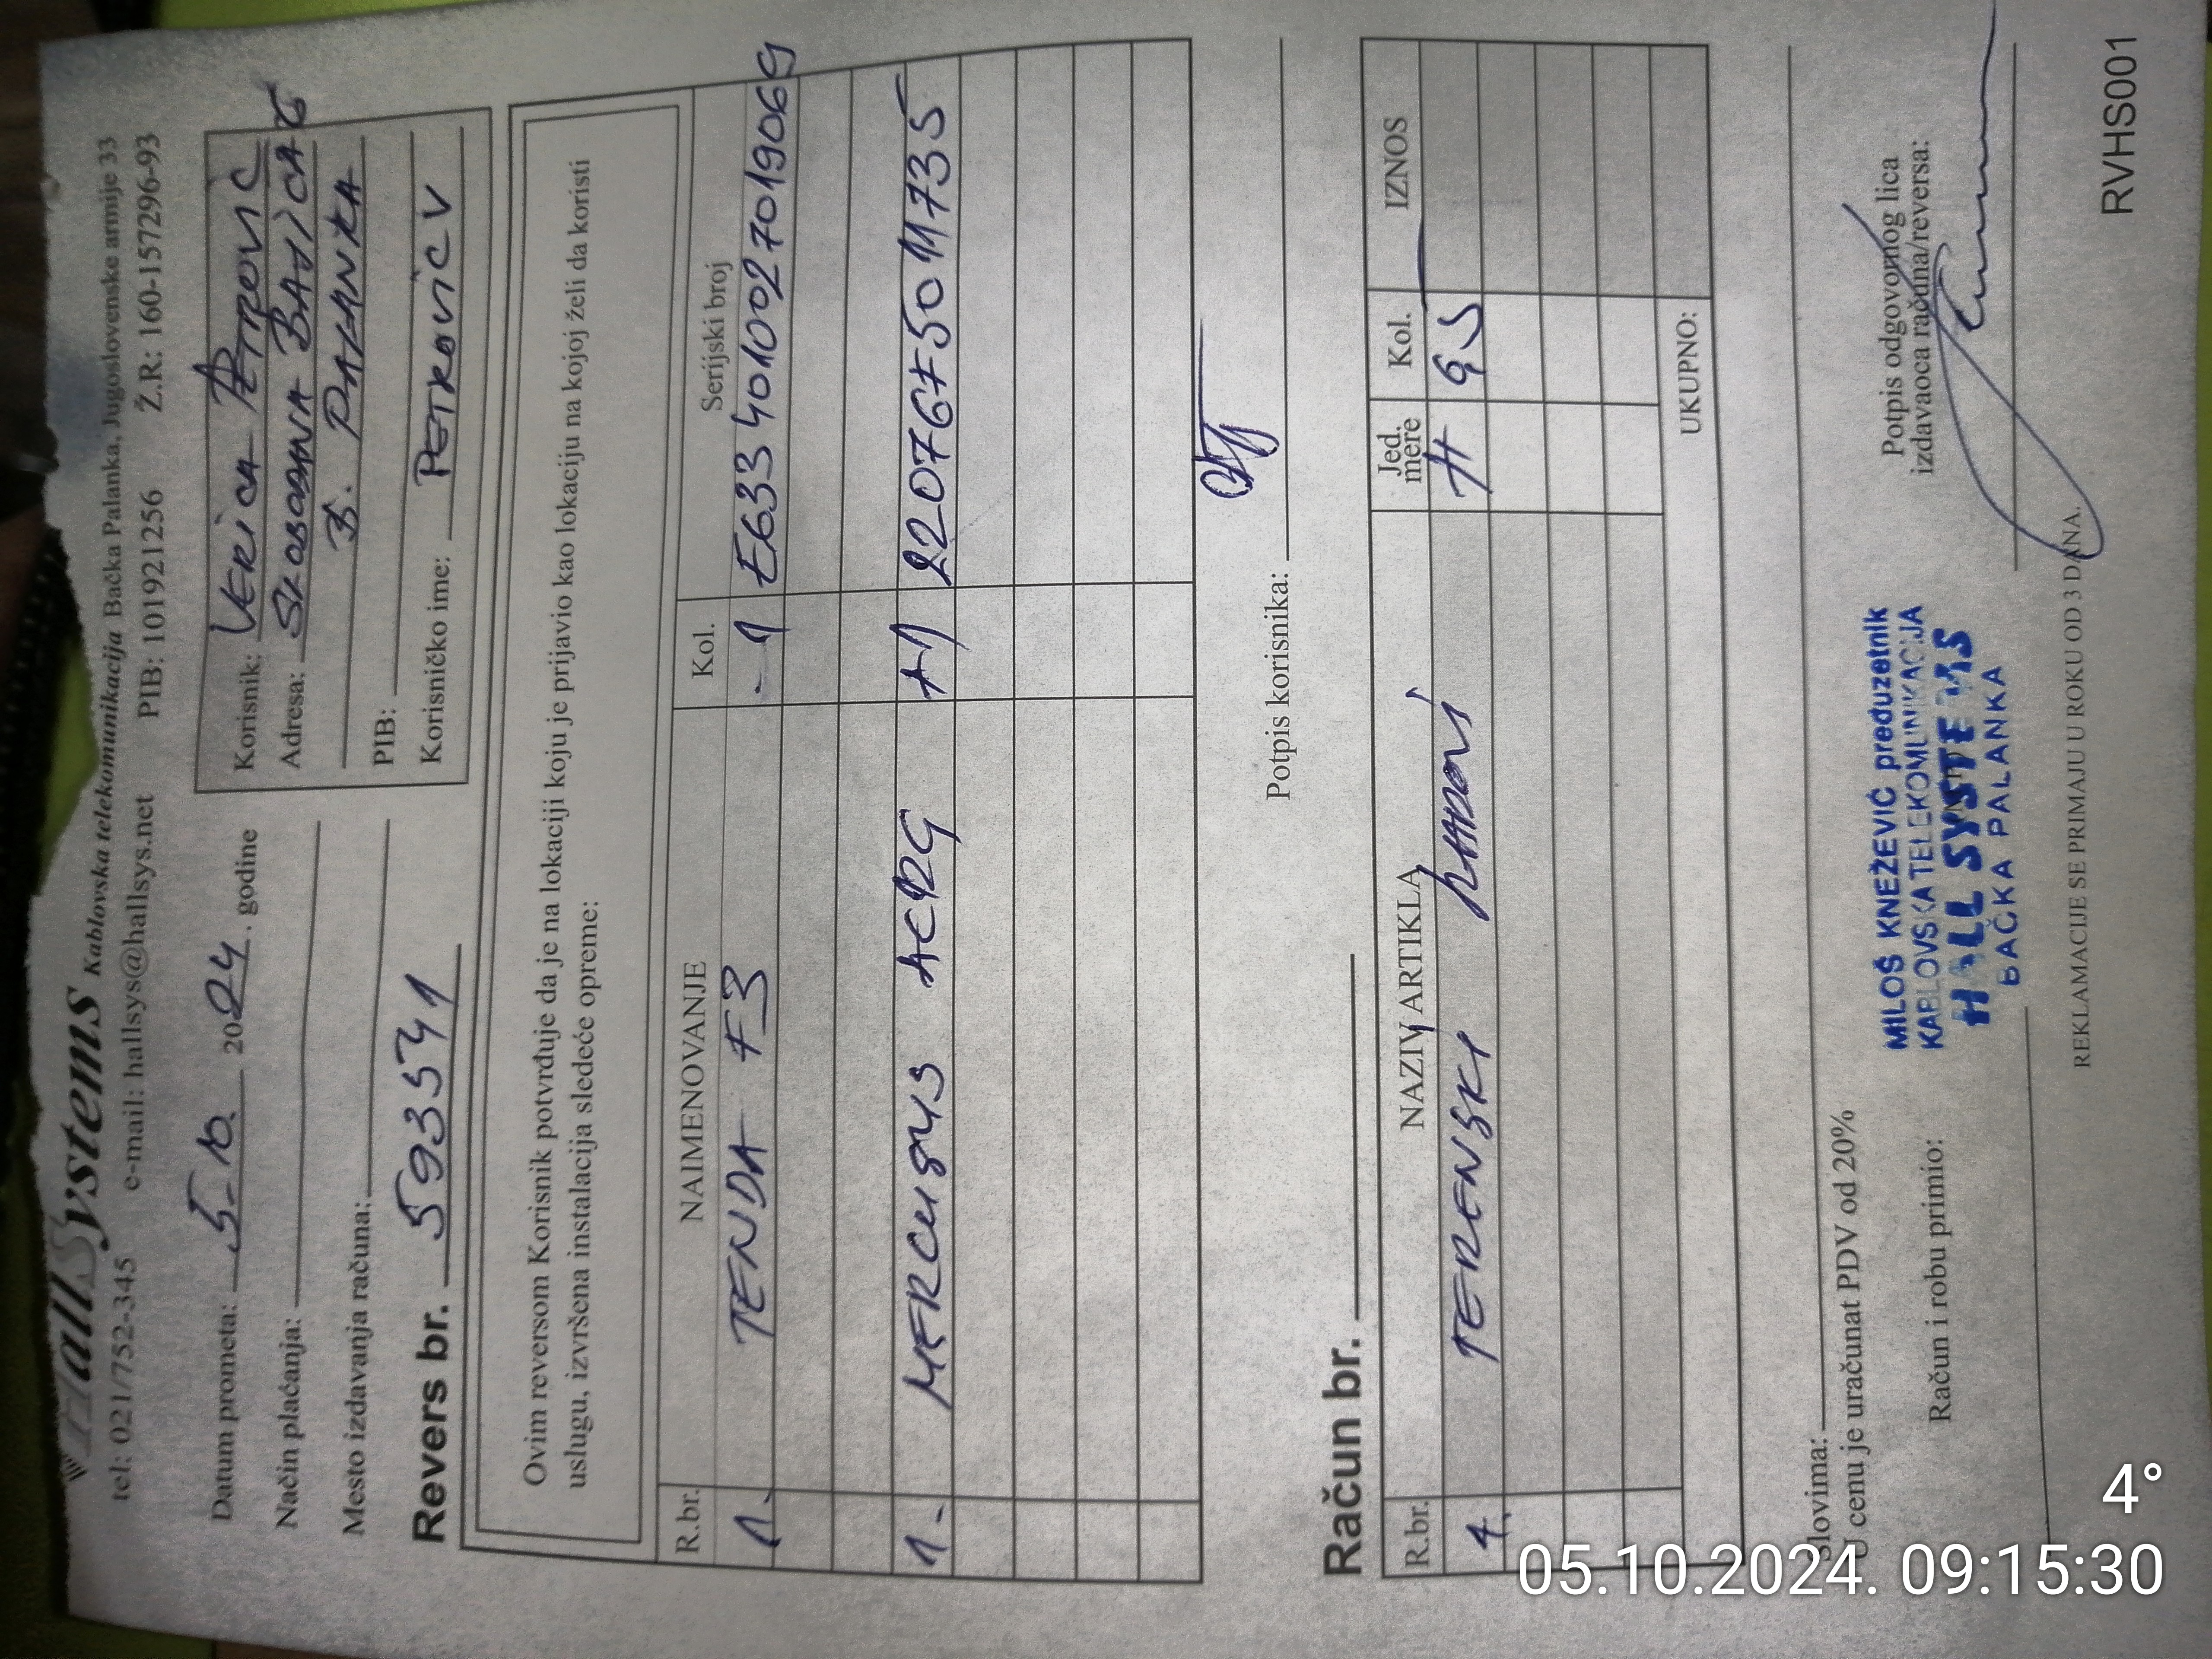 HallSystems Kablovska telekomunikacija Bačka Palanka, Jugoslovenske armije 33
tel: 021/752-345 e-mail: hallsys@hallsys.net PIB: 101921256 Ž.R: 160-157296-93
Datum prometa: 5-10. 2024. godine
Način plaćanja:
Mesto izdavanja računa:
Revers br. 593541
Korisnik: VERICA PETROVIĆ
Adresa: SLOBODANA BAJIĆA
B. PALANKA
PIB:
Korisničko ime: PETKOVIC V
Ovim reversom Korisnik potvrđuje da je na lokaciji koju je prijavio kao lokaciju na kojoj želi da koristi
uslugu, izvršena instalacija sledeće opreme:
R.br. NAIMENOVANJE Kol. Serijski broj
1. TENDA F3 -1 E6334010027019069
1- MERCUSYS AC12G +1 2207675011735
Potpis korisnika:
Račun br.
R.br. NAZIV ARTIKLA Jed. mere Kol. IZNOS
1. TERENSKI RADOVI H 95
UKUPNO:
Slovima:
U cenu je uračunat PDV od 20%
Račun i robu primio:
MILOŠ KNEŽEVIĆ preduzetnik
KABLOVSKA TELEKOMUNIKACIJA
HALL SYSTEMS
BAČKA PALANKA
Potpis odgovornog lica
izdavaoca računa/reversa:
REKLAMACIJE SE PRIMAJU U ROKU OD 3 DANA.
RVHS001
4°
05.10.2024. 09:15:30